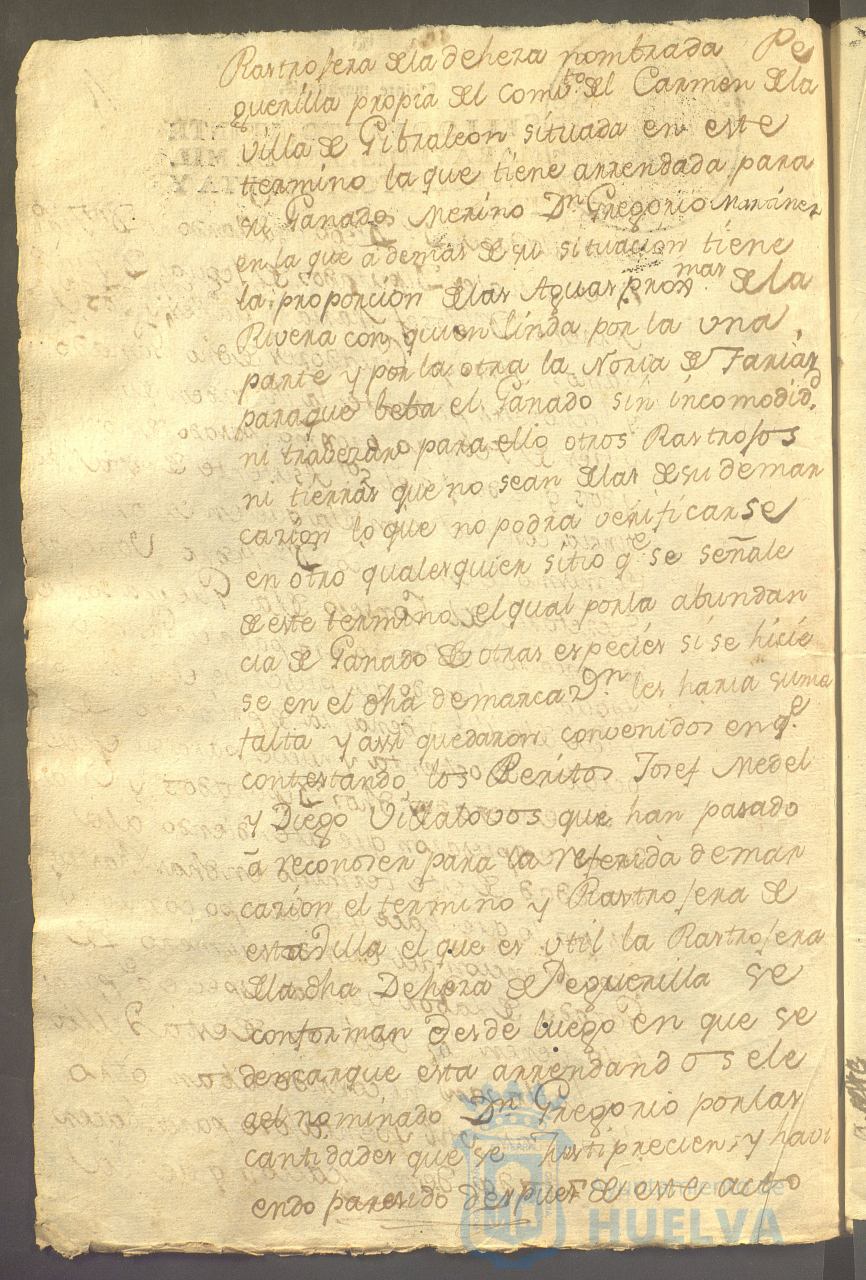 Rastrojera de la dehera nombrada Pe
guerilla propia del Combto. del Carmen de la
villa de Gibraleon situada en este
termino la que tiene arrendada para
su Ganado Merino Dn Gregorio Martinez
en la que ademas de su situacion tiene
la proporcion de las Aguas proxmas. de la
Rivera con quien linda por la una
parte y por la otra la Noria de Farias
paraque beba el Ganado sin incomodidd.
ni traverar para ello otros Rastrojos
ni tierras que no sean de las de su demar
cazion lo que no podra verificarse
en otro qualesquier sitio qe se señale
de este termino el qual por la abundan
cia de Ganado de otras especies si se hicie
se en el dha demarcazon les haria suma
falta y assi quedaron convenidos en qe.
contestando los Peritos Josef Medel
y Diego Villalovos que han pasado
a reconoser para la referida demar
cazion el termino y Rastrojera de
esta Villa el que es util la Rastrojera
de la dha Dehera de Peguerilla se
conforman desde luego en que se
demarque esta arrendandosele
al nominado Dn Gregorio por las
cantidades que se Justiprecien, y havi
endo parerido despues de este acto
Ayuntamiento de
HUELVA